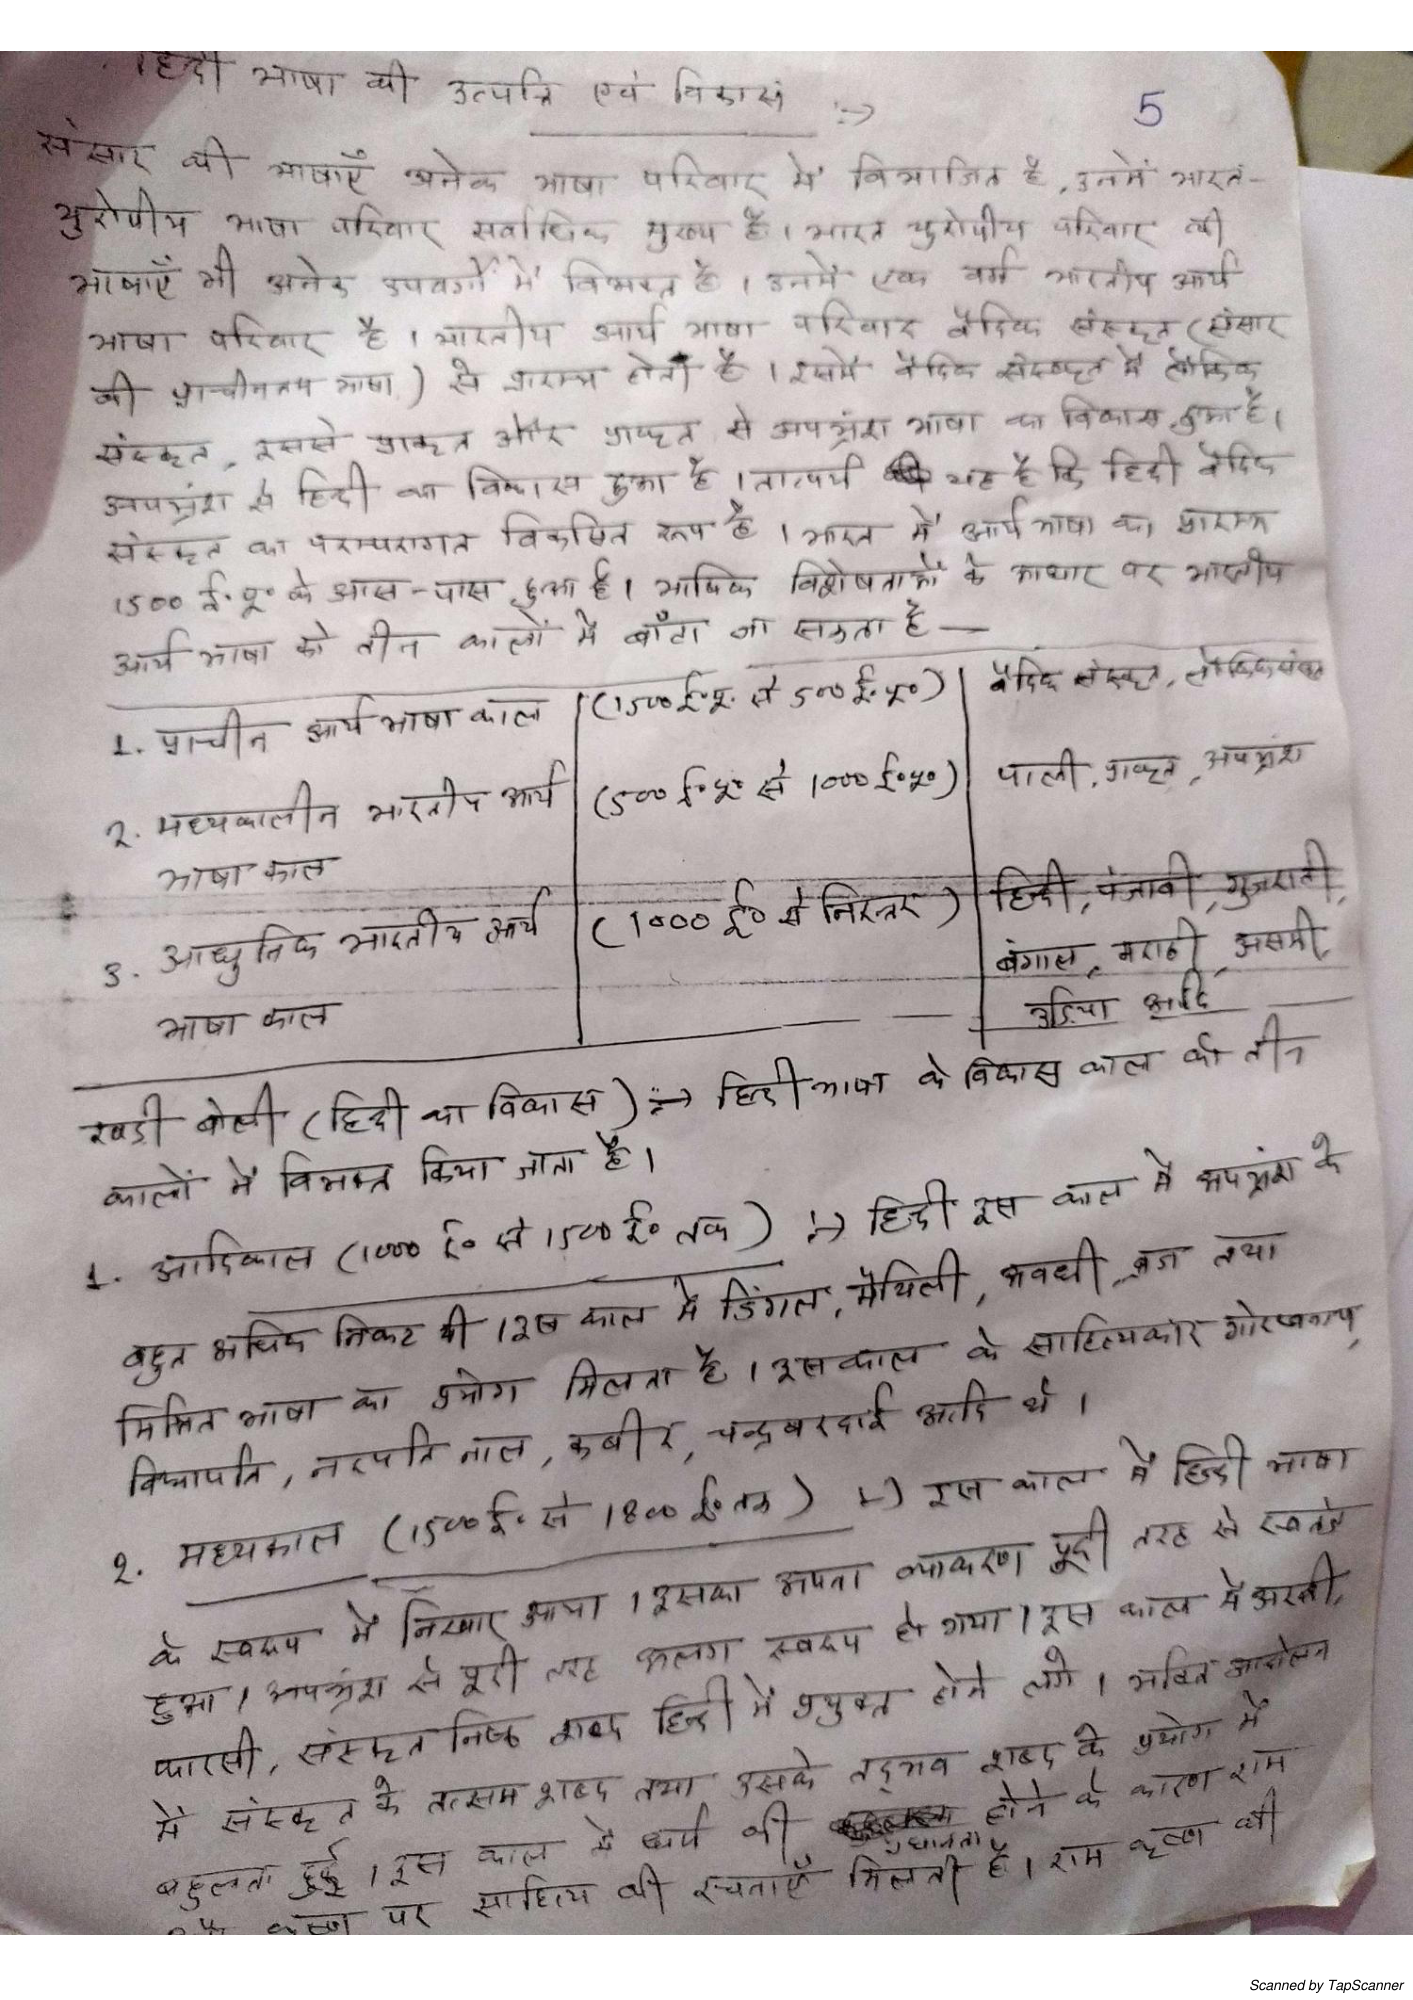 हिन्दी भाषा की उत्पत्ति एवं विकास :->
5
संसार की भाषाएँ अनेक भाषा परिवार में विभाजित है, उनमें भारत-
युरोपीय भाषा परिवार सर्वाधिक मुख्य है। भारत युरोपीय परिवार की
भाषाएँ भी अनेक उपवर्गों में विभक्त है। उनमें एक वर्ग भारतीय आर्य
भाषा परिवार है। भारतीय आर्य भाषा परिवार वैदिक संस्कृत (संसार
की प्राचीनतम भाषा) से प्रारम्भ होता है। इसमें वैदिक संस्कृत में लौकिक
संस्कृत, इससे प्राकृत और प्राकृत से अपभ्रंश भाषा का विकास हुआ है।
अपभ्रंश से हिन्दी का विकास हुआ है। तात्पर्य यह है कि हिंदी वैदिक
संस्कृत का परम्परागत विकसित रूप है। भारत में आर्य भाषा का प्रारम्भ
1500 ई॰ पू॰ के आस-पास हुआ है। भाषिक विशेषताओं के आधार पर भारतीय
आर्य भाषा को तीन कालों में बाँटा जा सकता है —
1. प्राचीन आर्य भाषा काल (1500 ई॰पू॰ से 500 ई॰पू॰) वैदिक संस्कृत, लौकिक संस्कृत
2. मध्यकालीन भारतीय आर्य (500 ई॰पू॰ से 1000 ई॰पू॰) पाली, प्राकृत, अपभ्रंश
भाषा काल
3. आधुनिक भारतीय आर्य (1000 ई॰ से निरन्तर) हिन्दी, पंजाबी, गुजराती,
बंगाल, मराठी, असमी,
भाषा काल उड़िया आदि
खडी बोली (हिंदी का विकास) :-> हिन्दी भाषा के विकास काल को तीन
कालों में विभक्त किया जाता है।
1. आदिकाल (1000 ई॰ से 1500 ई॰ तक) :-> हिन्दी इस काल में अपभ्रंश के
बहुत अधिक निकट थी। इस काल में डिंगल, मैथिली, अवधी, ब्रज तथा
मिश्रित भाषा का प्रयोग मिलता है। इस काल के साहित्यकार गोरखनाथ,
विद्यापति, नरपति नाल, कबीर, चन्द्रबरदाई आदि थे।
2. मध्यकाल (1500 ई॰ से 1800 ई॰ तक) :-> इस काल में हिन्दी भाषा
के स्वरूप में निखार आया। इसका अपना व्याकरण पूरी तरह से स्वतंत्र
हुआ। अपभ्रंश से पूरी तरह अलग स्वरूप हो गया। इस काल में अरबी,
फारसी, संस्कृत निष्ठ शब्द हिन्दी में प्रयुक्त होने लगे। भक्ति आन्दोलन
में संस्कृत के तत्सम शब्द तथा उसके तद्भव शब्द के प्रयोग में
बहुलता हुई। इस काल में धर्म की प्रधानता होने के कारण राम
और कृष्ण पर साहित्य की रचनाएँ मिलती है। राम कृष्ण की
Scanned by TapScanner